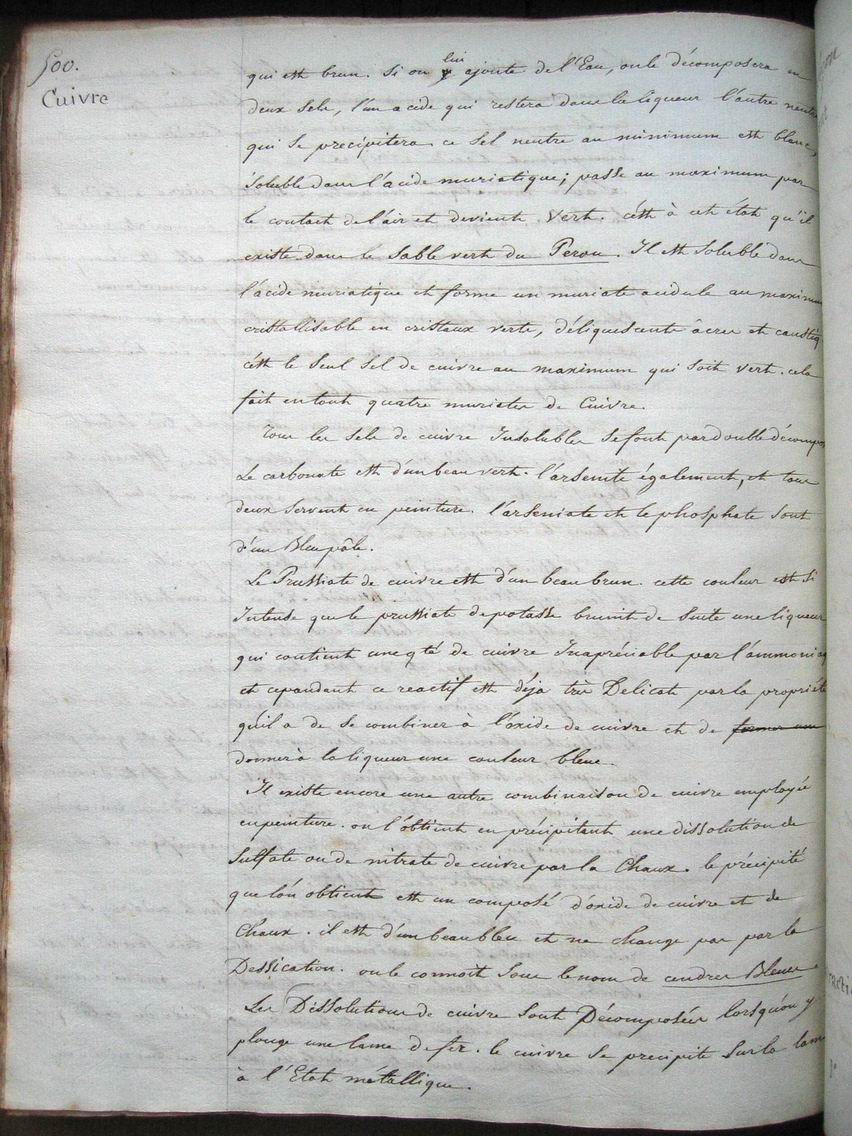 500.
Cuivre
qui est brun. Si on lui ajoute de l'Eau, on le décomposera en
deux sels, l'un acide qui restera dans la liqueur l'autre neutre
qui se precipitera ce sel neutre au minimum est blanc,
soluble dans l'acide muriatique; passe au maximum par
le contact de l'air et devient Vert. c'est à cet état qu'il
existe dans le Sable vert du Perou. Il est soluble dans
l'acide muriatique et forme un muriate acidule au maximum
cristallisable en cristaux verts, déliquescents âcres et caustiq
c'est le seul sel de cuivre au maximum qui soit vert. cela
fait en tout quatre muriates de Cuivre.
Tous les sels de cuivre Insolubles se font par double décompos
Le carbonate est d'un beau vert. l'arsenite également, et tous
deux servent en peinture. l'arseniate et le phosphate sont
d'un Bleu pâle.
Le Prussiate de cuivre est d'un beau brun. cette couleur est si
Intense que le prussiate de potasse brunit de suite une liqueur
qui contient une qté de cuivre Inapréciable par l'ammoniaq
et cependant ce reactif est déja très Delicat par la propriété
qu'il a de se combiner à l'oxide de cuivre et de former une
donner à la liqueur une couleur bleue.
Il existe encore une autre combinaison de cuivre employée
en peinture. on l'obtient en précipitant une dissolution de
Sulfate ou de nitrate de cuivre par la Chaux. le précipité
que l'on obtient est un composé d'oxide de cuivre et de
Chaux. il est d'un beau bleu et ne change pas par la
Dessication. on le connoit sous le nom de cendres Bleues.
Les Dissolutions de cuivre sont Décomposées lorsqu'on y
plonge une lame de fer. le cuivre se precipite sur la lame
à l'Etat métallique.